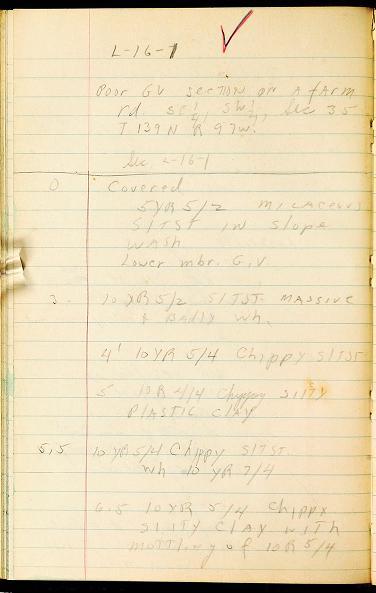 L-16-1
Poor GV section on a farm
rd. SE 1/4, SW 1/4, Sec 35
T 139 N R 97W.
Sec L-16-1
0 Covered
5YR 5/2 micaceous
SLTST in slope
wash
Lower mbr. G.V.
3. 10 YR 5/2 SLTST. massive
& badly wh.
4' 10 YR 5/4 chippy SLTST
5 10R 4/4 chippy silty
plastic clay
5.5 10 YR 5/4 chippy SLTST.
wh 10 YR 7/4
6.5 10YR 5/4 chippy
silty clay with
mottling of 10R 5/4